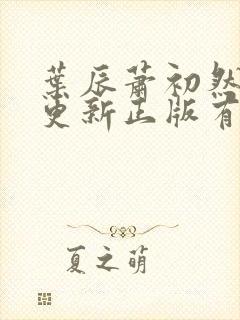 葉辰蕭初然
更新正版有
夏之萌